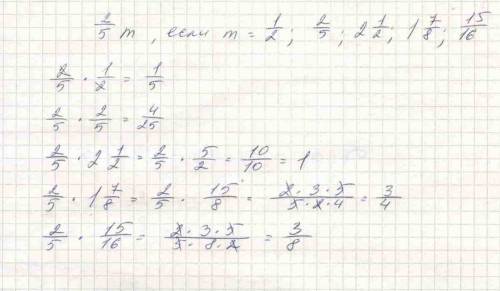 2/5 m, если m = 1/2; 2/5; 2 1/2; 1 7/8; 15/16
2/5 · 1/2 = 1/5
2/5 · 2/5 = 4/25
2/5 · 2 1/2 = 2/5 · 5/2 = 10/10 = 1
2/5 · 1 7/8 = 2/5 · 15/8 = 2·3·5/5·2·4 = 3/4
2/5 · 15/16 = 2·3·5/5·8·2 = 3/8